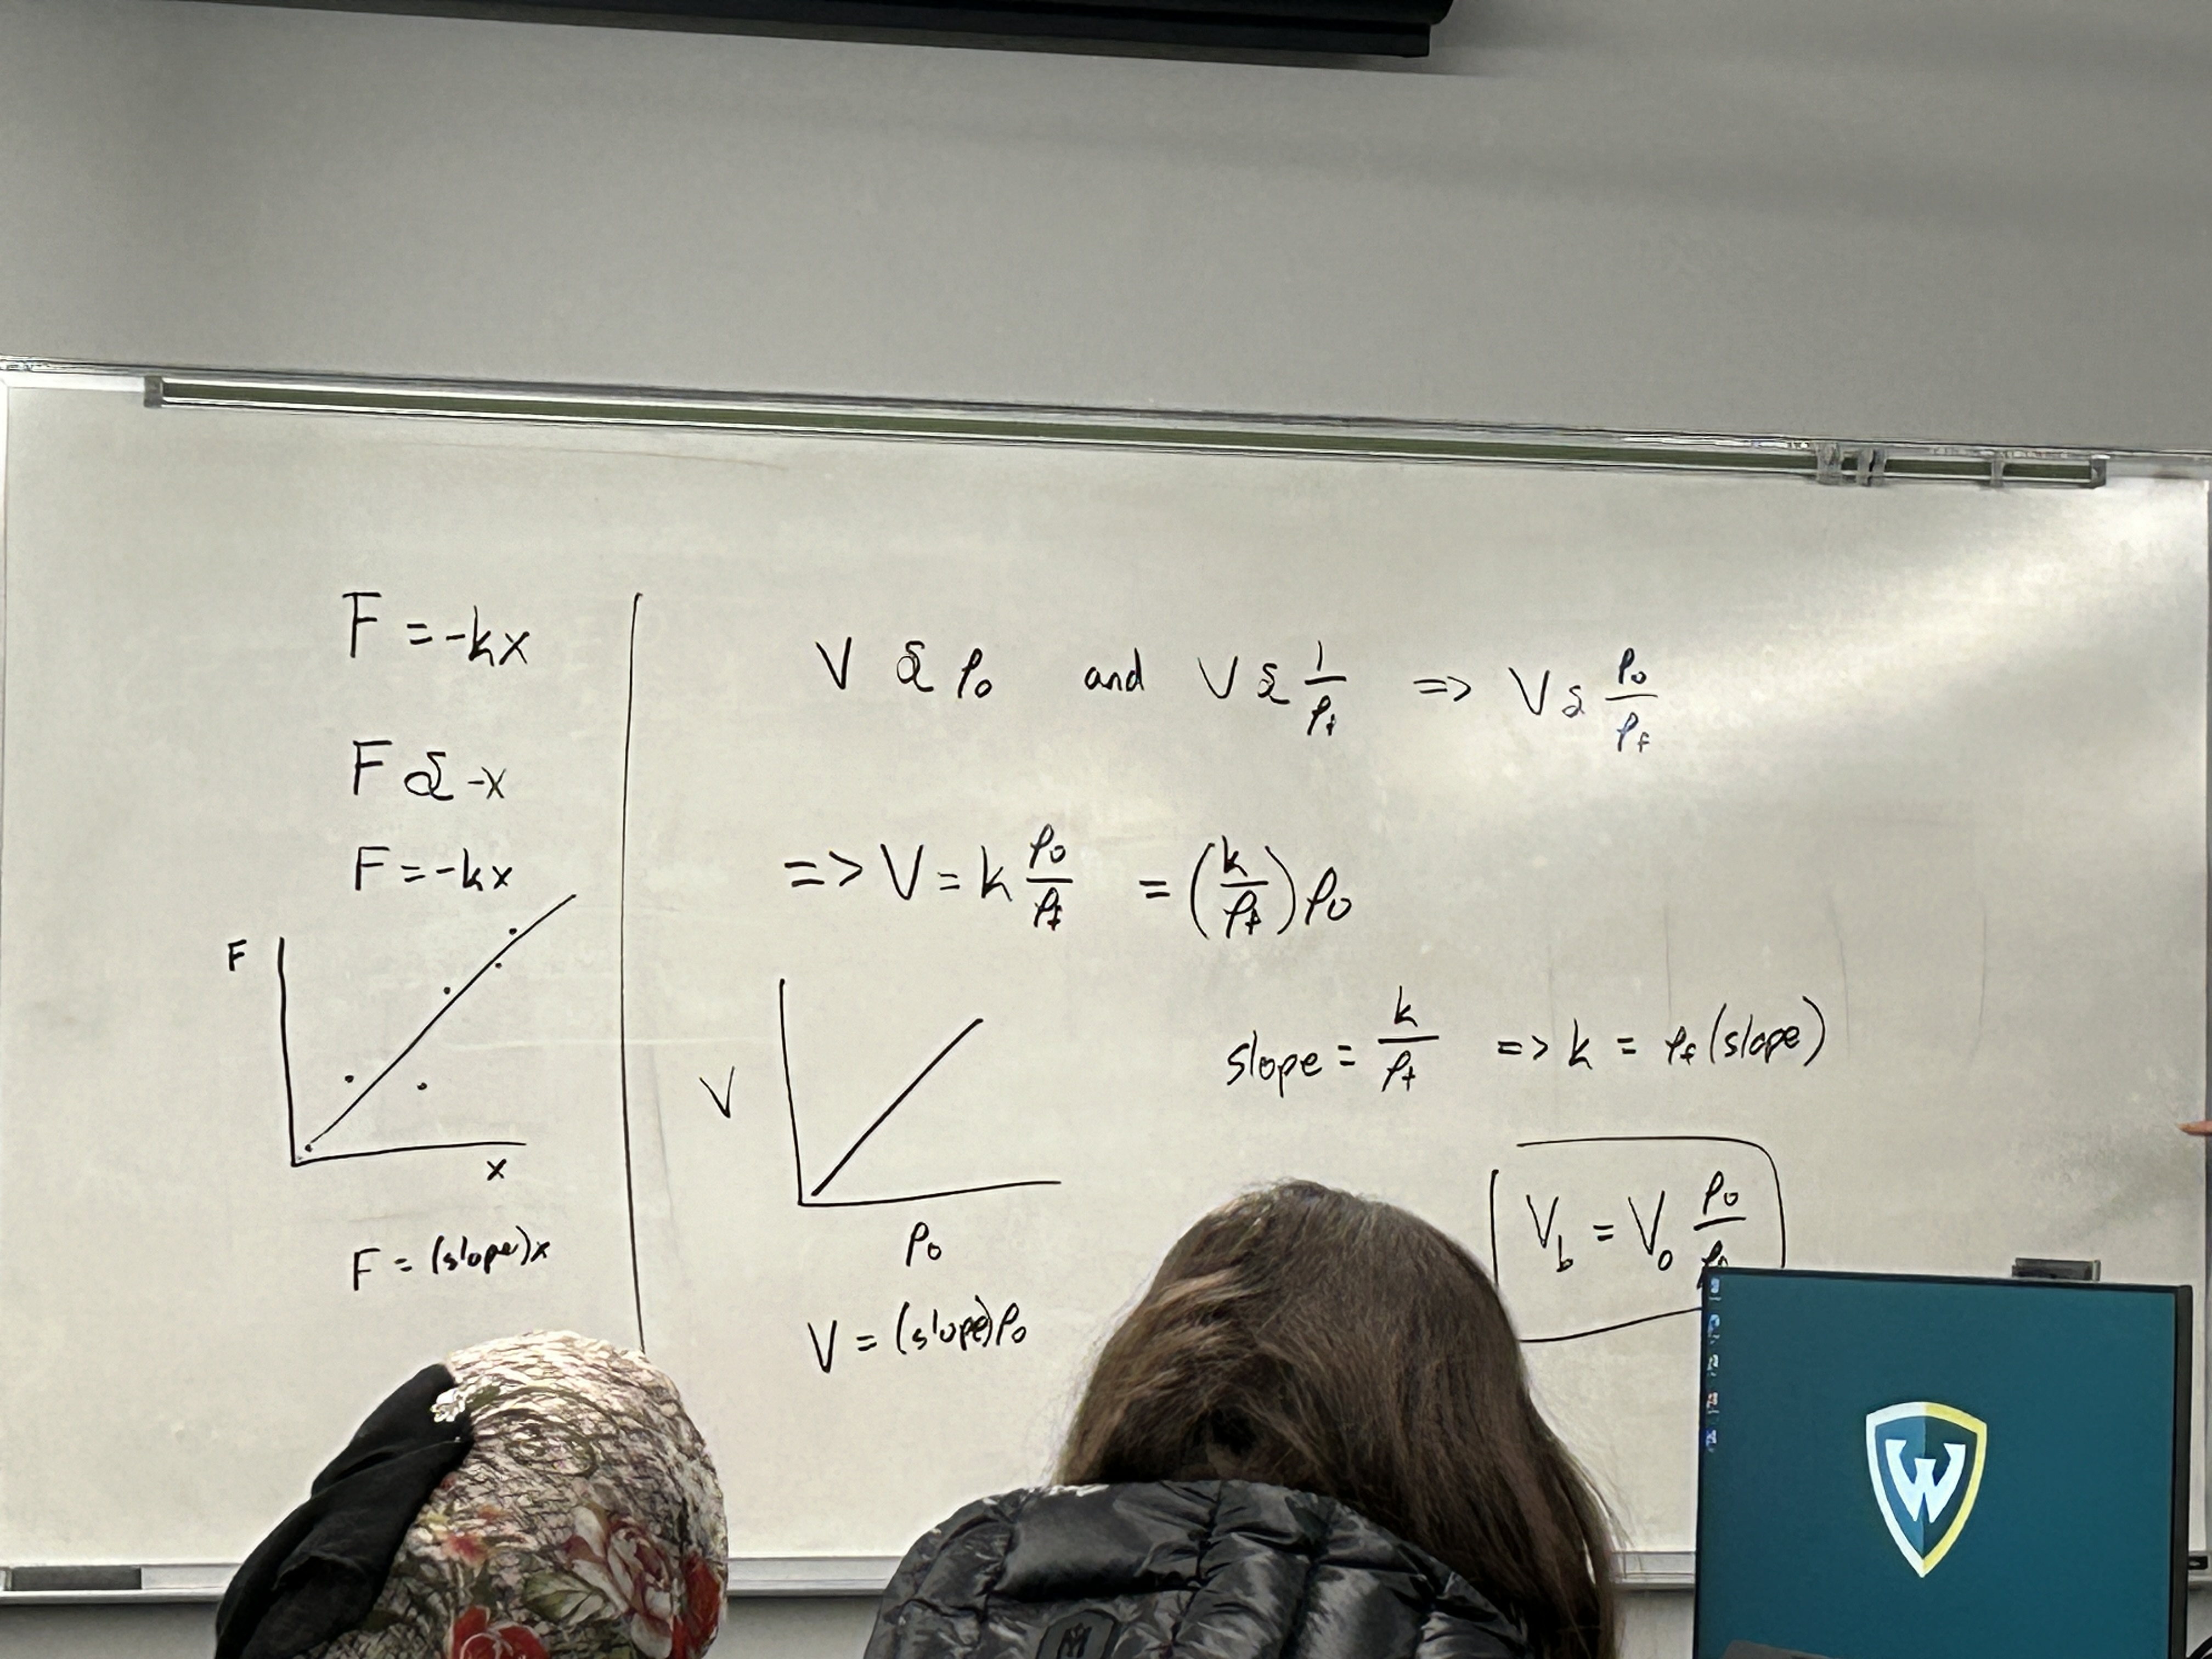 F = -kx
F α -x
F = -kx
F
x
F = (slope)x
V α ρ₀ and V α 1/ρf => V α ρ₀/ρf
=> V = k ρ₀/ρf = (k/ρf)ρ₀
V
ρ₀
V = (slope)ρ₀
slope = k/ρf => k = ρf(slope)
V_b = V₀ ρ₀/
W